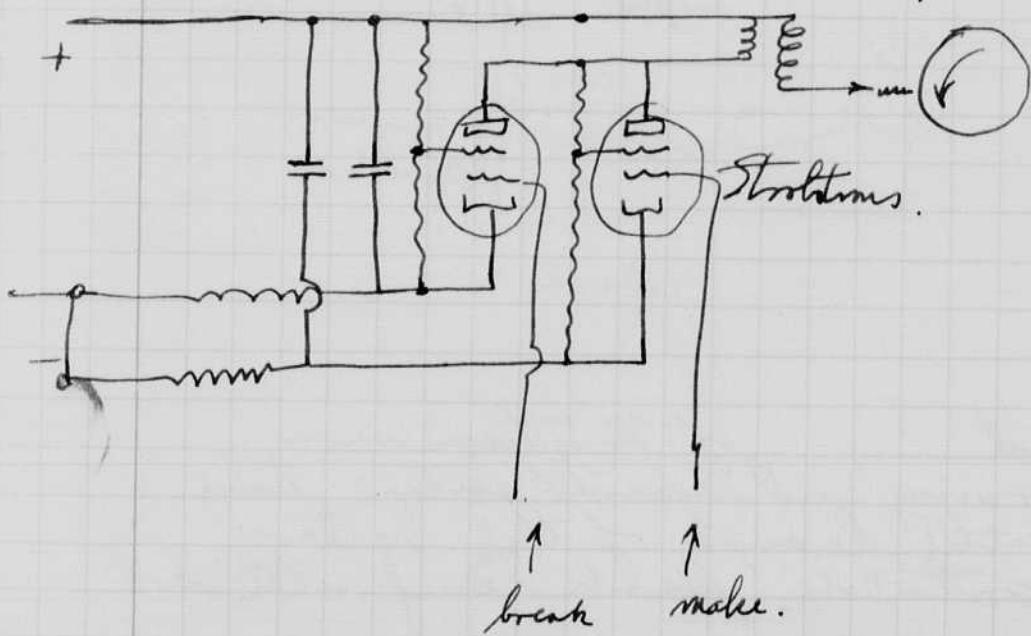 +
Strobotrons.
−
break
make.